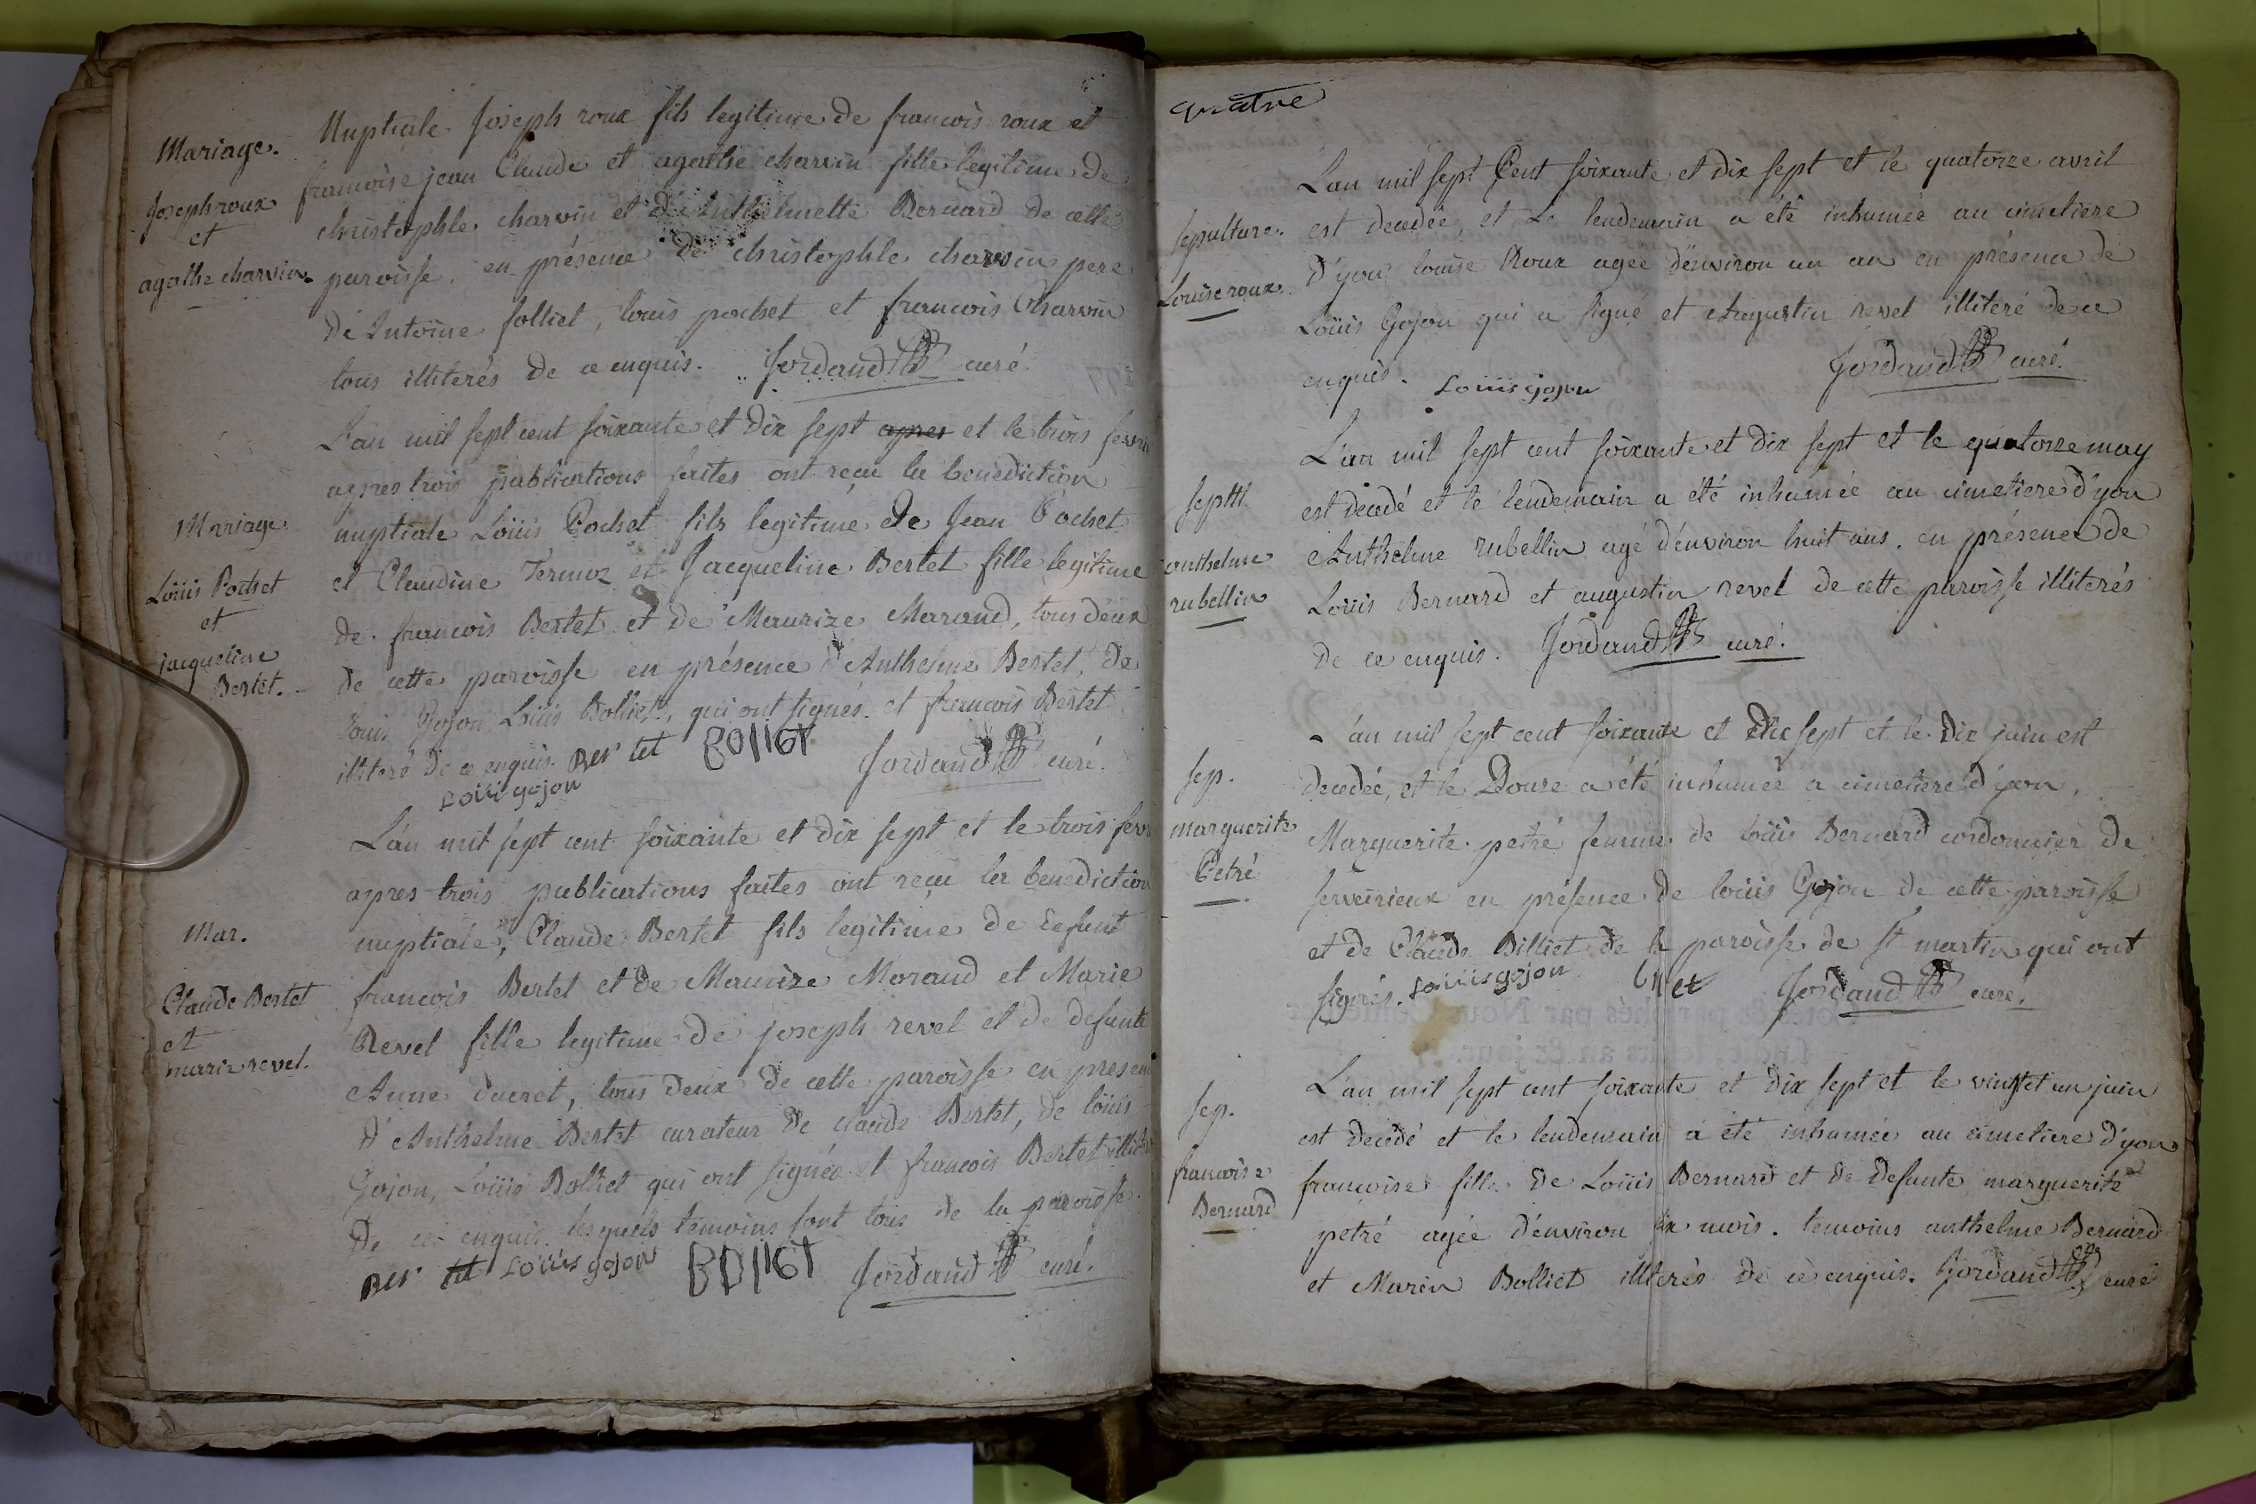 Mariage.
Joseph roux
et
agathe charvin.
Nuptiale Joseph roux fils legitime de francois roux et
francoise jean Claude et agathe charvin fille legitime de
christophle charvin et d'Anthelmette Bernard de cette
paroisse, en présence de christophle charvin pere
d'Antoine folliet, louis pochet et francois Charvin
tous illiterés de ce enquis. Jordand curé.
Mariage
Loüis Pochet
et
jacqueline
Bertet.
L'an mil sept cent soixante et dix sept apres et le trois fevrier
apres trois publications faites ont reçu la benediction
nuptiale Loüis Pochet fils legitime de Jean Pochet
et Claudine Termoz et Jacqueline Bertet fille legitime
de francois Bertet et de Maurize Morand, tous deux
de cette paroisse en présence d'Anthelme Bertet, de
Louis Gojon Loüis Bolliet, qui ont signés et francois Bertet
illiteré de ce enquis. Ber tet Bolliet Jordand curé.
Loüis gojon
Mar.
Claude Bertet
et
marie revel.
L'an mil sept cent soixante et dix sept et le trois fevr
apres trois publications faites ont reçu la benediction
nuptiale, Claude Bertet fils legitime de defunt
francois Bertet et de Maurize Morand et Marie
Revel fille legitime de joseph revel et de defunte
Anne ducret, tous deux de cette paroisse en presen
d'Anthelme Bertet curateur de claude Bertet, de loüis
Gojon, Loüis Bolliet qui ont signés et francois Bertet
de ce enquis lesquels temoins sont tous de la paroisse.
Ber tet Loüis gojon Bolliet Jordand curé.
quatre
sepulture.
Louise roux.
L'an mil sept Cent soixante et dix sept et le quatorze avril
est decedée, et Le lendemain a été inhumée au cimetiere
d'yon louise Roux agée d'environ un an en présence de
Loüis Gojon qui a signé et Augustin revel illiteré de ce
enquis. Loüis gojon Jordand curé.
anthelme
rubellin
L'an mil sept cent soixante et dix sept et le quatorze may
est decedé et le lendemain a été inhumée au cimetiere d'yon
Anthelme rubellin agé d'environ huit ans. en présence de
Loüis Bernard et augustin revel de cette paroisse illiterés
de ce enquis. Jordand curé.
sep.
marguerite
Petré
L'an mil sept cent soixante et dix sept et le dix juin est
decedée, et le Douze a été inhumée a cimetiere d'yon,
Marguerite petré femme de loüis Bernard cordonnier de
serveirieux en présence de loüis Gojon de cette paroisse
et de Claude Billiet de la paroisse de st martin qui ont
signés. Loüis gojon Jordand curé.
sep.
francoise
Bernard
L'an mil sept cent soixante et dix sept et le vingt et un juin
est decedé et le lendemain a été inhumée au cimetiere d'yon
francoise fille de Loüis Bernard et de defunte marguerite
petré agée d'environ six mois. temoins anthelme Bernard
et Marin Bolliet illiterés de ce enquis. Jordand curé